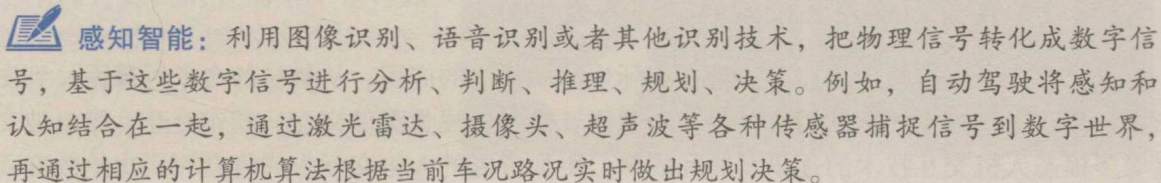 感知智能：利用图像识别、语音识别或者其他识别技术，把物理信号转化成数字信
号，基于这些数字信号进行分析、判断、推理、规划、决策。例如，自动驾驶将感知和
认知结合在一起，通过激光雷达、摄像头、超声波等各种传感器捕捉信号到数字世界，
再通过相应的计算机算法根据当前车况路况实时做出规划决策。